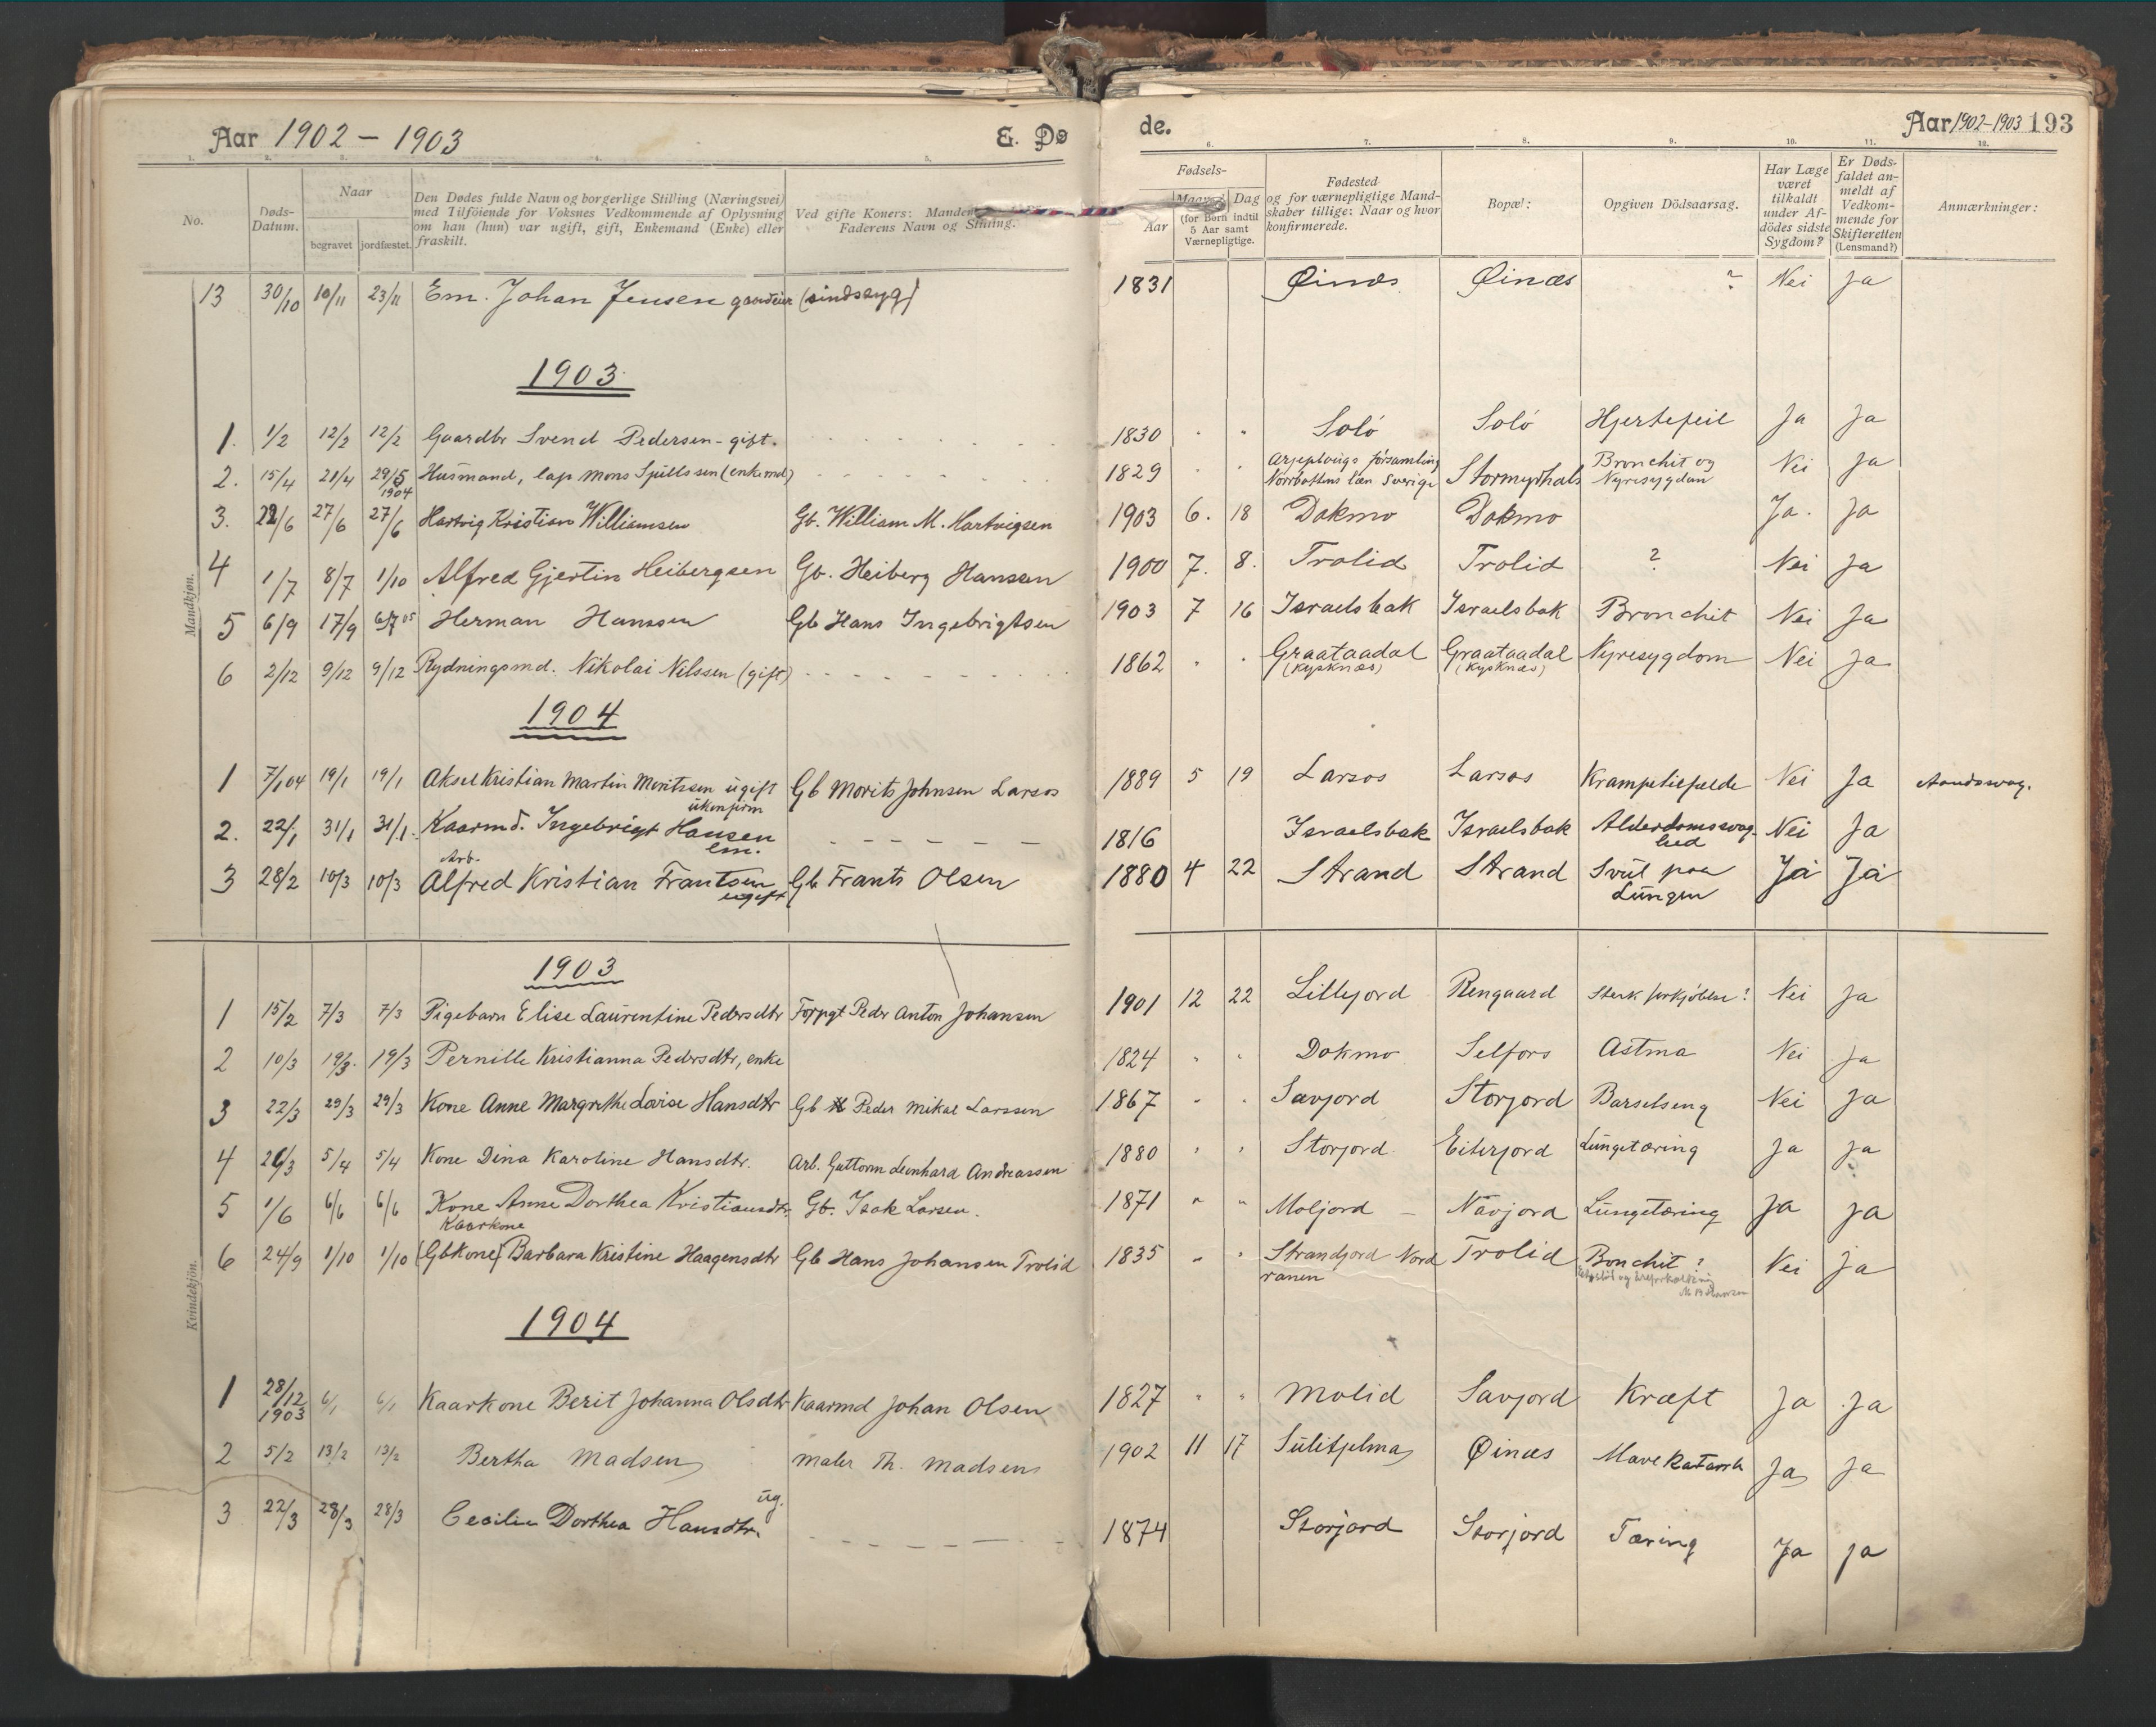 Aar 1902 – 1903 E. Dø
de. Aar 1902–1903 193
1. 2. 3. 4. 5. 6. 7. 8. 9. 10. 11. 12.
No.
Døds-Datum.
Naar
begravet jordfæstet.
Den Dødes fulde Navn og borgerlige Stilling (Næringsvei)
med Tilföiende for Voksnes Vedkommende af Oplysning
om han (hun) var ugift, gift, Enkemand (Enke) eller
fraskilt.
Ved gifte Koners: Mandens
Faderens Navn og Stilling.
Fødsels-
Aar
Maaned Dag
(for Børn indtil
5 Aar samt
Værnepligtige.
Fødested
og for værnepligtige Mand-
skaber tillige: Naar og hvor
konfirmerede.
Bopæl:
Opgiven Dödsaarsag.
Har Læge
været
tilkaldt
under Af-
dödes sidste
Sygdom?
Er Døds-
faldet an-
meldt af
Vedkom-
mende for
Skifteretten
(Lensmand?)
Anmærkninger:
Mandkjøn.
13 30/10 10/11 23/11 Em. Johan Jensen gaardeier (sindssyg) 1831 Øinæs Øinæs ? Nei Ja
1903
1. 1/2 12/2 12/2 Gaardbr Svend Pedersen - gift. 1830 " " Solö Solö Hjertefeil Ja Ja
2. 15/4 21/4 29/5 1904 Husmand, lap Mons Spillssen (enkemd) 1829 " " Arjeplougs församling Norrbottens län Sverige Stormyrhals Bronchit og Nyresygdom Nei Ja
3. 22/6 27/6 27/6 Hartvig Kristian Williamsen Gb. William M. Hartvigsen 1903 6. 18 Dokmo Dokmo Ja. Ja
4 1/7 8/7 1/10 Alfred Gjertin Heibergsen Gb. Heiberg Hanssen 1900 7. 8. Trolid Trolid ? Nei Ja
5 6/9 17/9 6/7 05 Herman Hanssen Gb Hans Ingebrigtsen 1903 7 16 Israelsbak Israelsbak Bronchit Nei Ja
6 2/12 9/12 9/12 Rydningsmd. Nikolai Nilssen (gift) 1862 " " Graataadal (Kysknæs) Graataadal (Kysknæs) Nyresygdom Nei Ja
1904
1 7/1 04 19/1 19/1 Aksel Kristian Martin Moritssen ugift ukonfirm Gb Morits Johnsen Larsos 1889 5 19 Larsos Larsos Krampetilfælde Nei Ja Aandssvag.
2. 22/1 31/1 31/1. Kaarmd. Ingebrigt Hansen em. 1816 Israelsbak Israelsbak Alderdomssvag-hed Nei Ja
3 28/2 10/3 10/3 Arb. Alfred Kristian Frantsen ugift Gb Frants Olsen 1880 4 22 Strand Strand Svul paa Lungen Ja Ja
Kvindekjön.
1903
1 15/2 7/3 7/3 Pigebarn Elise Laurentine Pedersdtr Forpgt Peder Anton Johansen 1901 12 22 Lillejord Rengaard Sterk forkjölelse? Nei Ja
2 10/3 19/3. 19/3 Pernille Kristianna Pedersdtr, enke 1824 " " Dokmo Selfors Astma Nei Ja
3 22/3 29/3 29/3 Kone Anne Margrethe Lovise Hansdtr Gb Peder Mikal Larssen 1867 " " Savjord Storjord Barselseng Nei Ja
4 26/3 5/4 5/4 Kone Dina Karoline Hansdtr. Arb. Guttorm Leonhard Andreassen 1880 " " Storjord Eiterjord Lungetæring Ja Ja
5 1/6 6/6 6/6 Kone Anne Dorthea Kristiansdtr. Gb. Isak Larsen. 1871 " " Moljord – Navjord Lungetæring Ja Ja
6 24/9 1/10 1/10 Kaarkone (Gbkone) Barbara Kristine Haagensdtr Gb Hans Johansen Trolid 1835 " " Strandjord Nordranen Trolid Bonchit ? Nei Ja
1904
1 28/12 1903 6/1 6/1 Kaarkone Berit Johanna Olsdtr Kaarmd Johan Olsen 1827 " " Molid Savjord Kræft Ja Ja
2 5/2 13/2 13/2 Bertha Madsen Maler Th. Madsen 1902 11 17 Sulitjelma Øinæs Mavekatarrh Ja Ja
3 22/3 28/3 28/3 Cecilie Dorthea Hansdtr. ug. 1874 Storjord Storjord Tæring Ja Ja